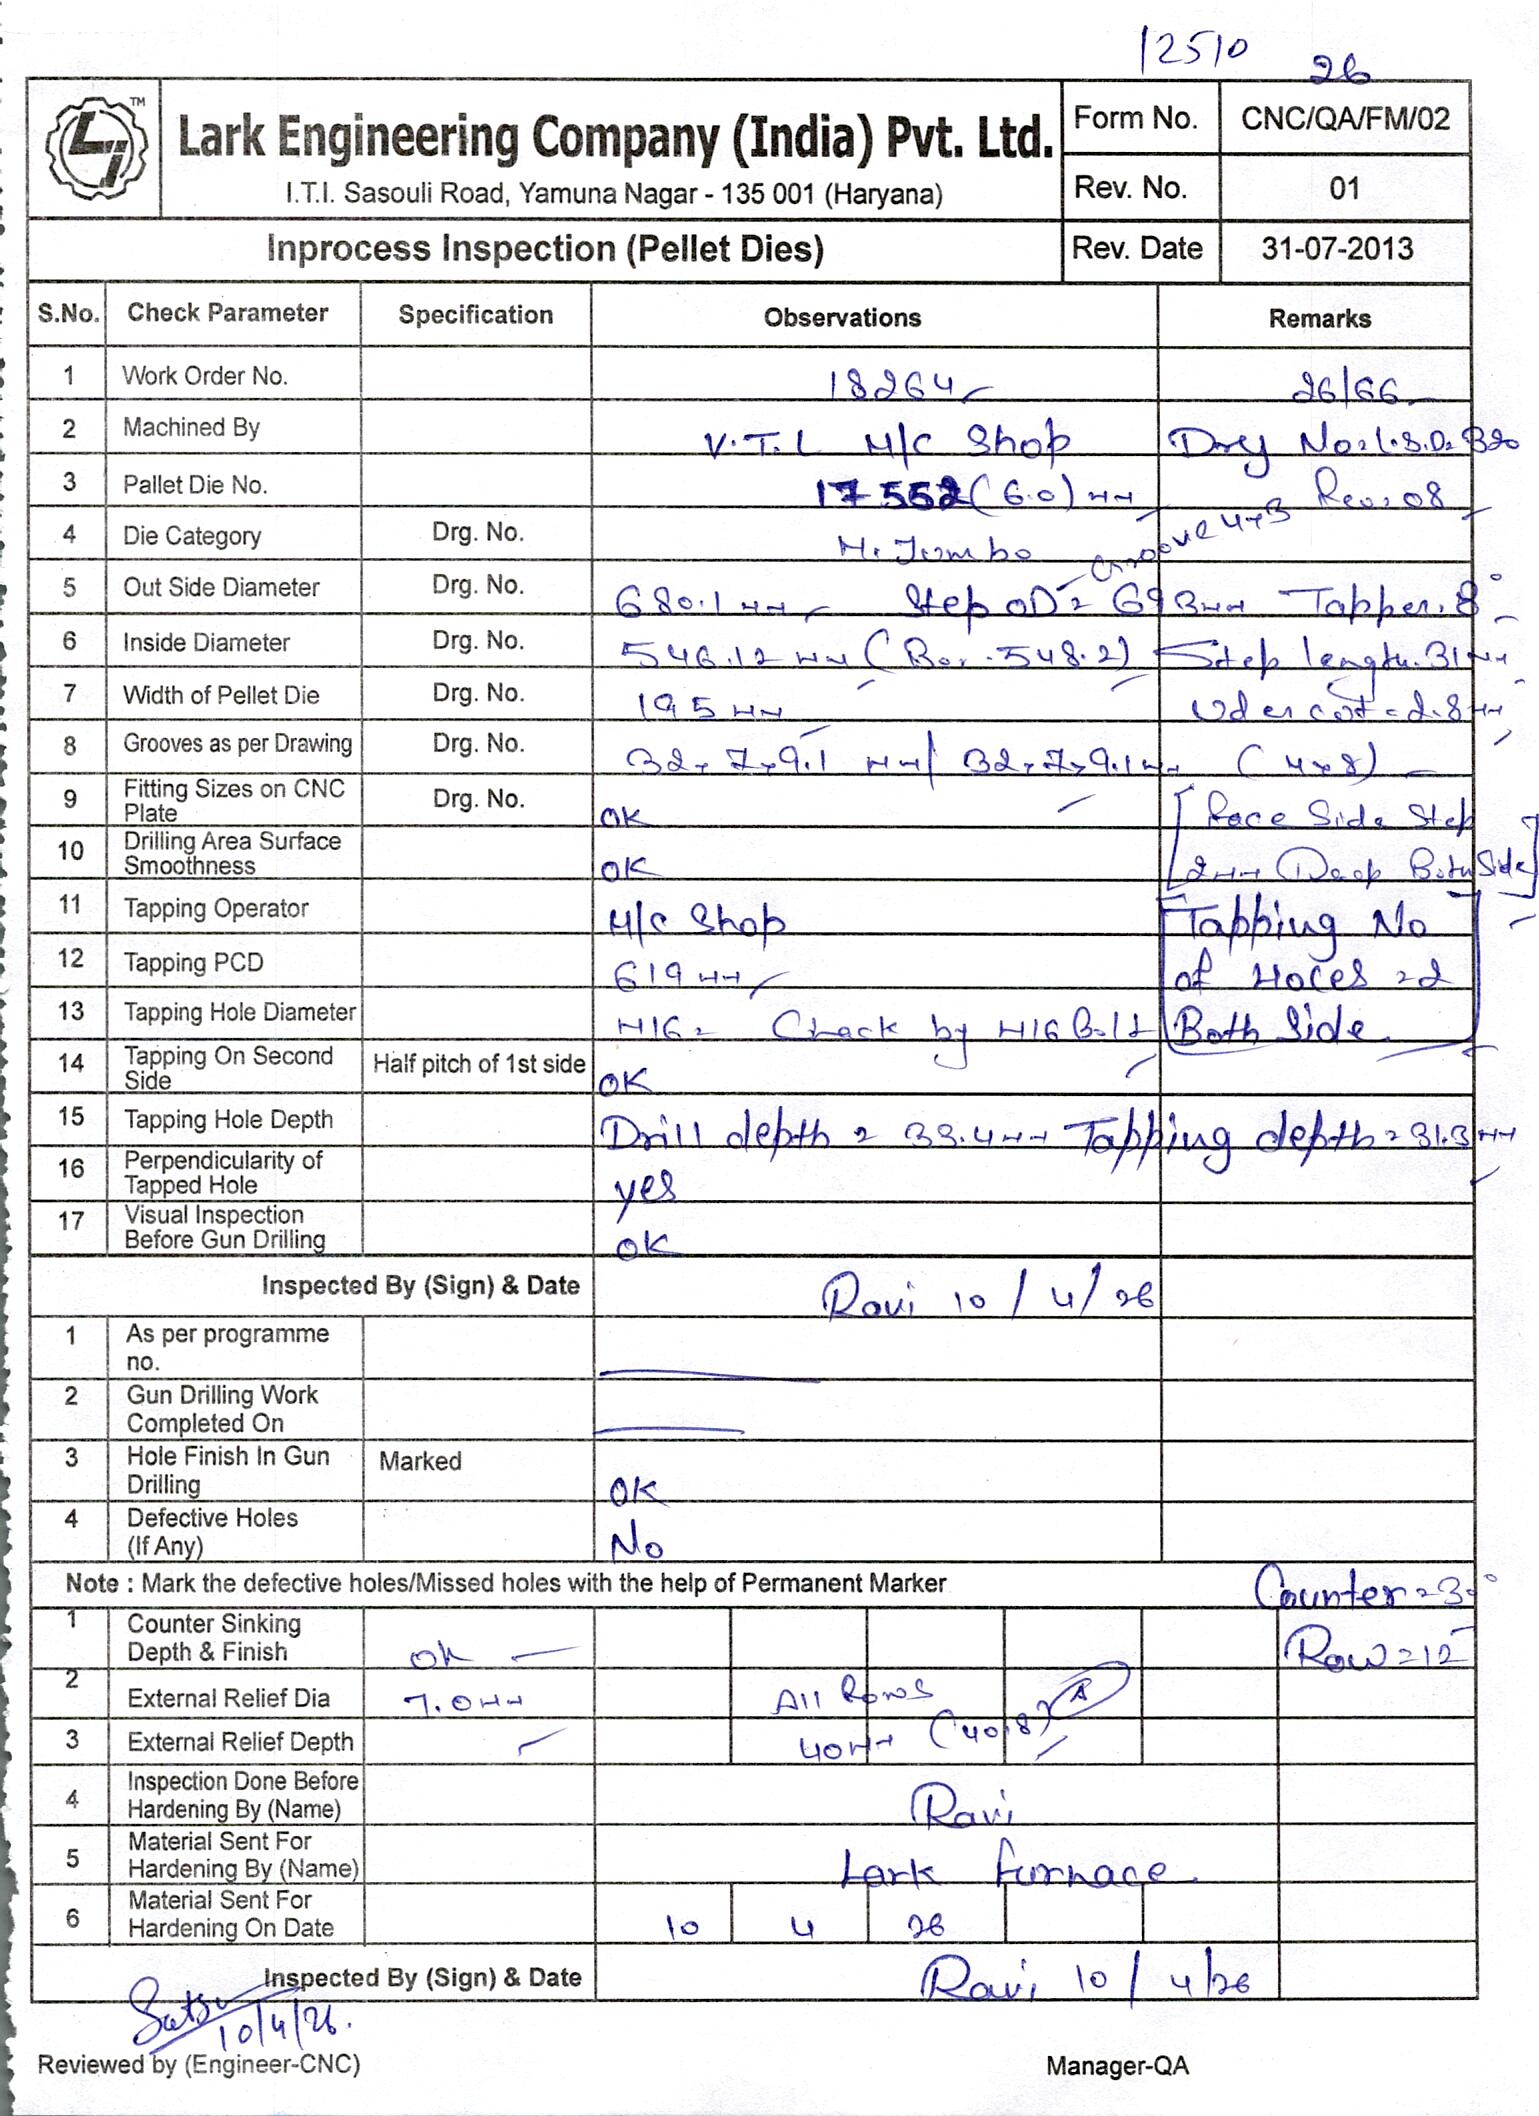 12510
26
TM
Lark Engineering Company (India) Pvt. Ltd.
I.T.I. Sasouli Road, Yamuna Nagar - 135 001 (Haryana)
Form No. CNC/QA/FM/02
Rev. No. 01
Inprocess Inspection (Pellet Dies) Rev. Date 31-07-2013
S.No. Check Parameter Specification Observations Remarks
1 Work Order No. 18264 26/66
2 Machined By V.T.L M/C Shop
3 Pallet Die No. 17552 (6.0) Rev. 08
4 Die Category Drg. No. M. Jumbo Groove 4x3
5 Out Side Diameter Drg. No. 680.1 mm Step OD = 693 mm Tapper. 8°
6 Inside Diameter Drg. No. 546.12 mm (Bor. 548.2) Step length. 31 mm
7 Width of Pellet Die Drg. No. 195 mm Uder cot = 2.8 mm
8 Grooves as per Drawing Drg. No. 32x7x9.1 mm / 32x7x9.1 mm (4x8)
9 Fitting Sizes on CNC Plate Drg. No. OK Face Side Step
10 Drilling Area Surface Smoothness OK 2mm Deep Both Side
11 Tapping Operator M/C Shop Tapping No
12 Tapping PCD 619 mm of Holes = 2
13 Tapping Hole Diameter M16 = Check by M16 Bolt Both Side
14 Tapping On Second Side Half pitch of 1st side OK
15 Tapping Hole Depth Drill depth = 33.4 mm Tapping depth = 31.3 mm
16 Perpendicularity of Tapped Hole yes
17 Visual Inspection Before Gun Drilling OK
Inspected By (Sign) & Date Ravi 10/4/26
1 As per programme no.
2 Gun Drilling Work Completed On
3 Hole Finish In Gun Drilling Marked OK
4 Defective Holes (If Any) No
Note : Mark the defective holes/Missed holes with the help of Permanent Marker Counter = 30°
1 Counter Sinking Depth & Finish OK Row = 12
2 External Relief Dia 7.0 mm All Rows A
3 External Relief Depth 40 mm (40.8)
4 Inspection Done Before Hardening By (Name) Ravi
5 Material Sent For Hardening By (Name) Lark furnace
6 Material Sent For Hardening On Date 10 4 26
Inspected By (Sign) & Date Ravi 10/4/26
10/4/26.
Reviewed by (Engineer-CNC) Manager-QA